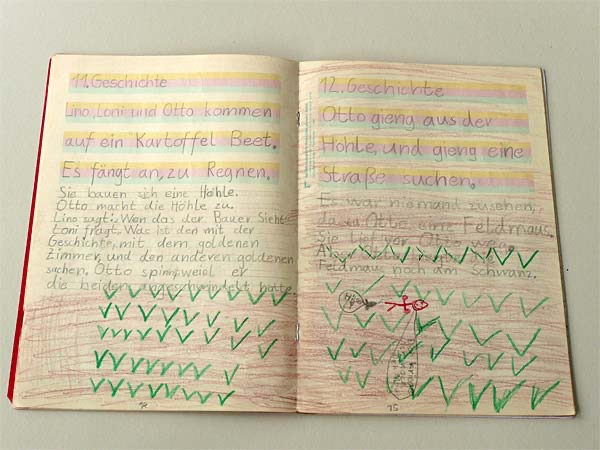 11. Geschichte
Lino, Loni, und Otto kommen
auf ein Kartoffel Beet.
Es fängt an, zu Regnen,
Sie bauen sich eine Höhle.
Otto macht die Höhle zu.
Lino sagt: Wen das der Bauer Sieht
Loni fragt. Was ist den mit der
Geschichte, mit dem goldenen
Zimmer, und den anderen goldenen
suchen. Otto spinnt, weiel er
die beiden angeschwindelt hatte.
12. Geschichte
Otto gieng aus der
Höhle, und gieng eine
Straße suchen.
Es war niemand zusehen,
da sa Otto eine Feldmaus.
Sie lief vor Otto weg.
Feldmaus noch am Schwanz.
15